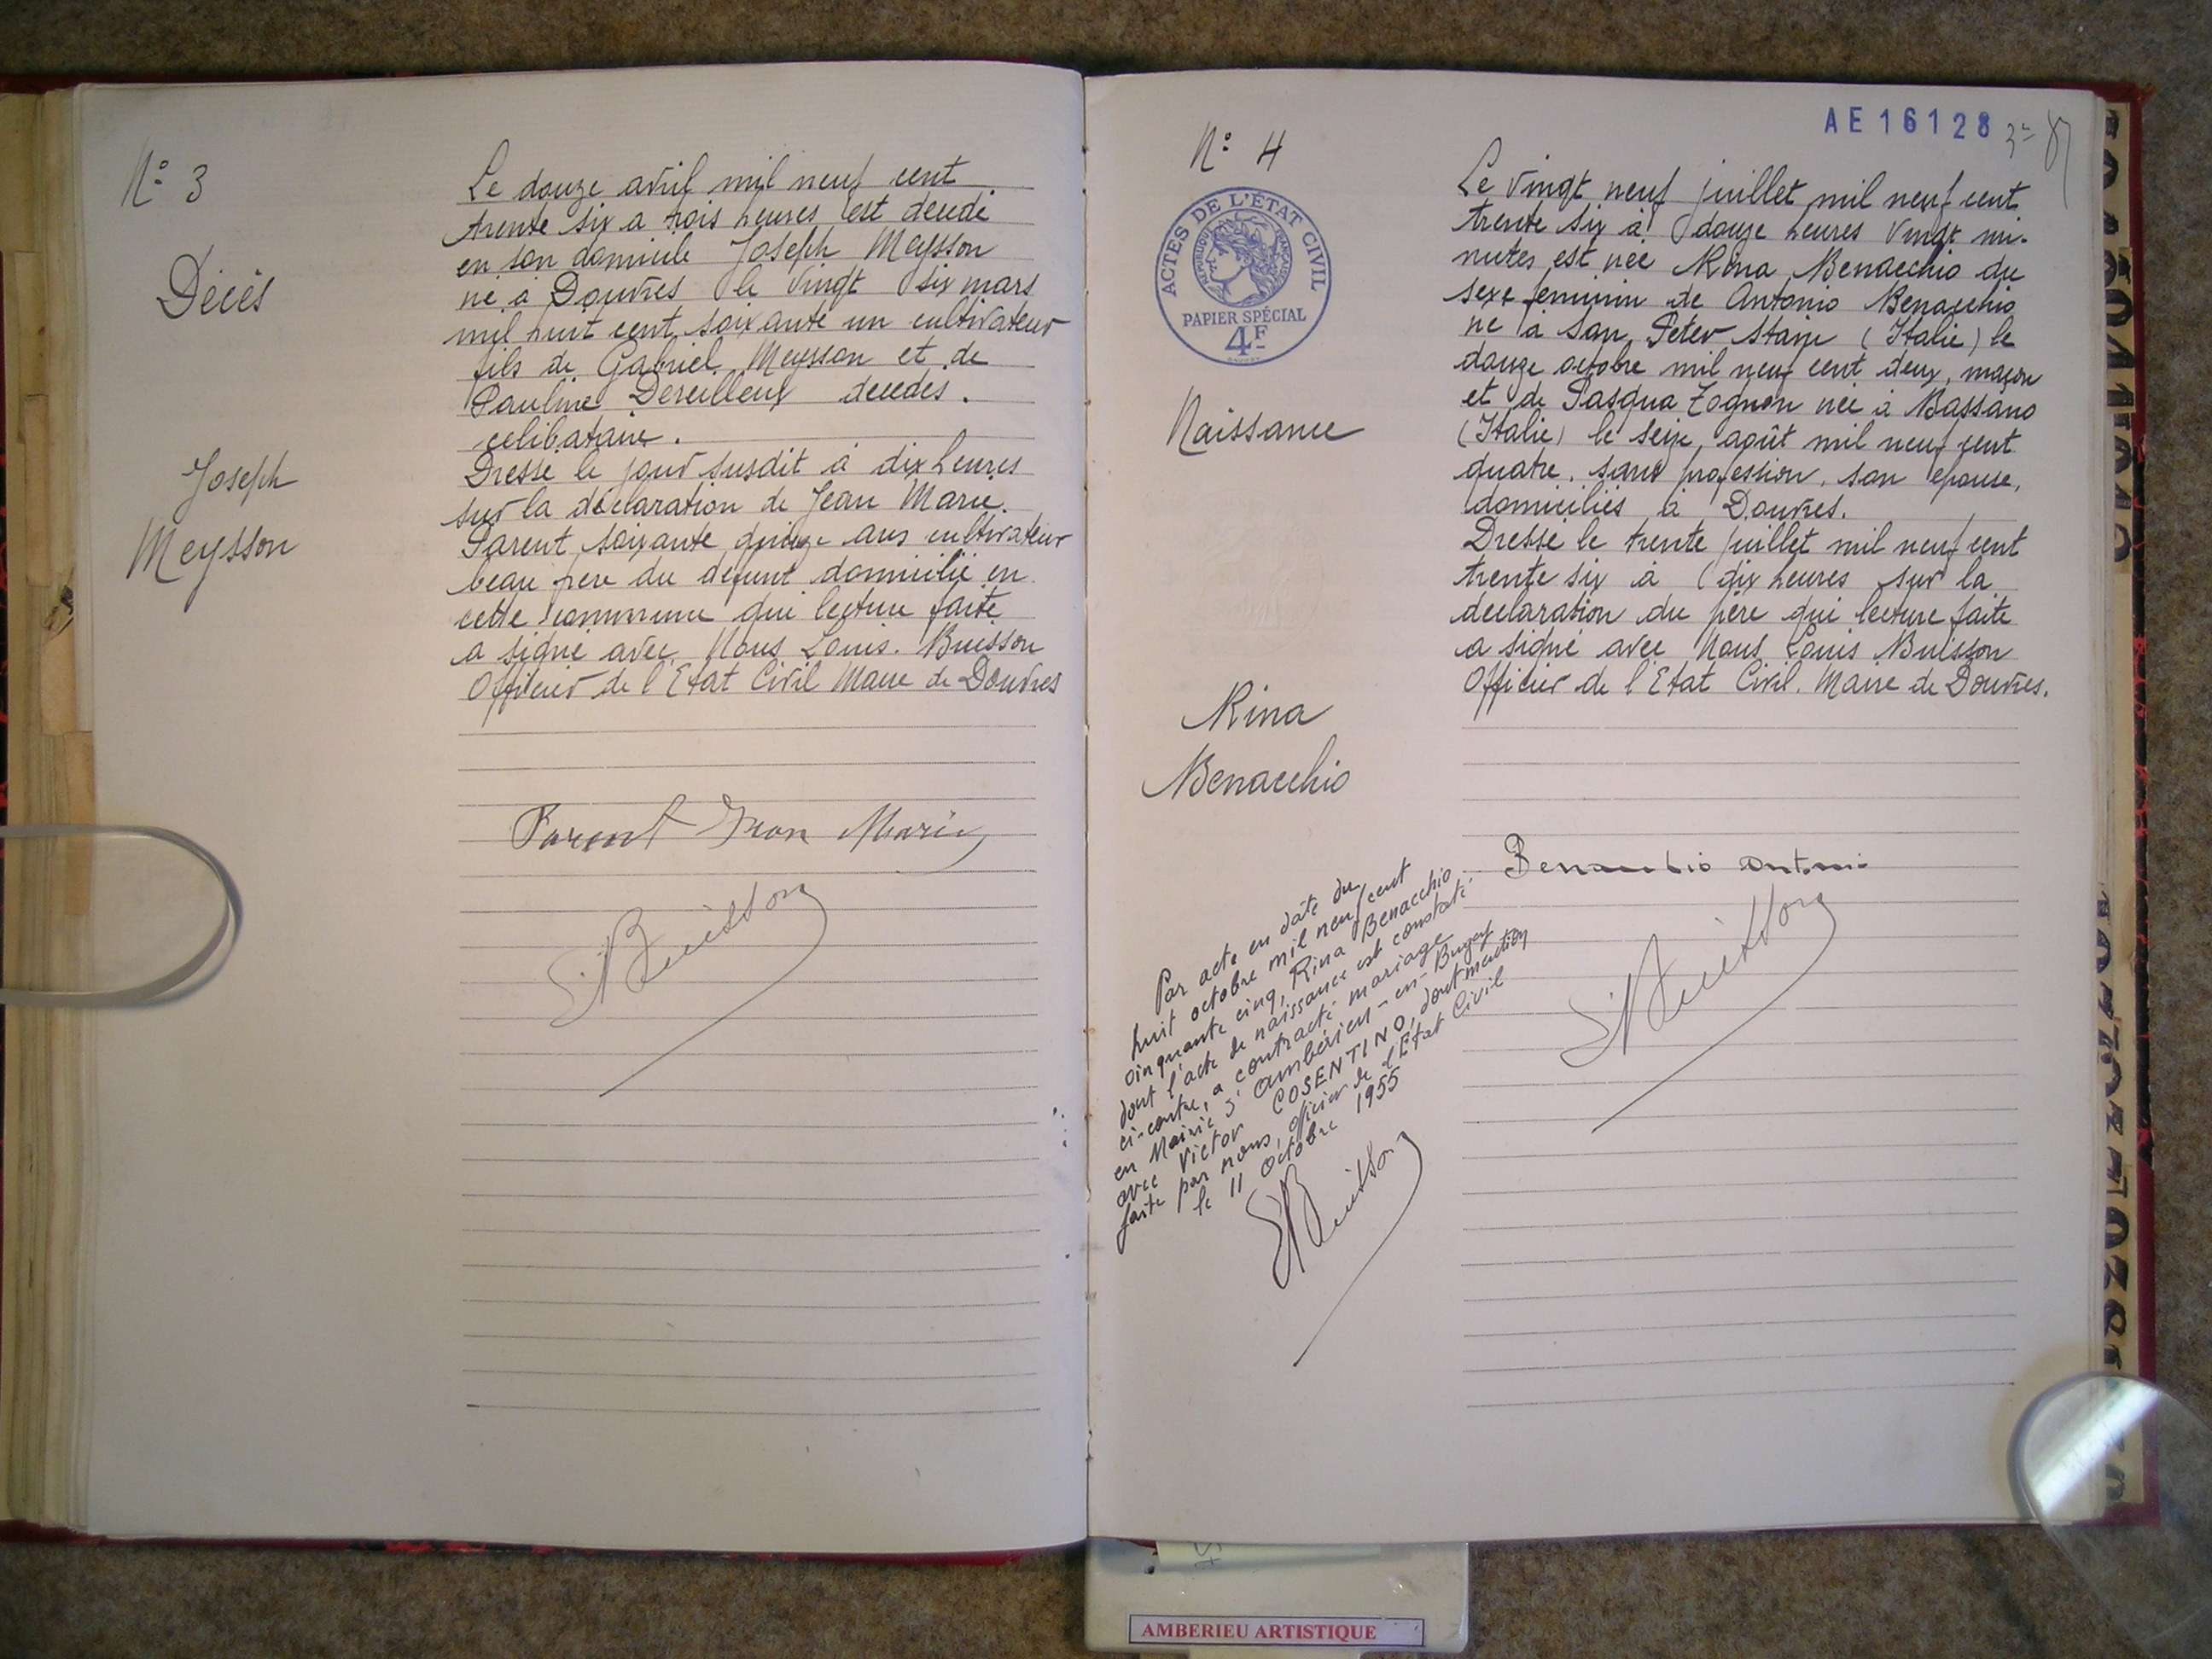 N° 3
Décès
Joseph
Meysson
Le douze avril mil neuf cent
trente six a trois heures est decedé
en son domicile Joseph Meysson
né à Douvres le vingt six mars
mil huit cent soixante un cultivateur
fils de Gabriel Meysson et de
Pauline Dereilleux decedes.
celibataire.
Dressé le jour susdit à dix heures
sur la déclaration de Jean Marie
Parent soixante quinze ans cultivateur
beau pere du defunt domicilié en
cette commune qui lecture faite
a signé avec Nous Louis. Buisson
Officier de l'Etat Civil Maire de Douvres
Parent Jean Marie
Buisson
AE16128
N° 4
ACTES DE L'ÉTAT CIVIL
RÉPUBLIQUE FRANÇAISE
PAPIER SPÉCIAL
4F
Naissance
Rina
Benacchio
Le vingt neuf juillet mil neuf cent
trente six à douze heures vingt mi-
nutes est née Rina Benacchio du
sexe feminin de Antonio Benacchio
né à San Peter (Italie) le
douze octobre mil neuf cent deux, maçon
et de Pasqua Zognon née à Bassano
(Italie) le seize août mil neuf cent
quatre. sans profession. son epouse,
domiciliés à Douvres.
Dressé le trente juillet mil neuf cent
trente six à dix heures sur la
declaration du père qui lecture faite
a signé avec Nous Louis Buisson
Officier de l'Etat Civil. Maire de Douvres.
Benacchio Antonio
Buisson
Par acte en date du
huit octobre mil neuf cent
cinquante cinq, Rina Benacchio
dont l'acte de naissance est constaté
ci-contre, a contracté mariage
en Mairie d'Ambérieu-en-Bugey
avec Victor COSENTINO, dont mention
faite par nous, officier de l'Etat Civil
le 11 Octobre 1955
Buisson
AMBERIEU ARTISTIQUE